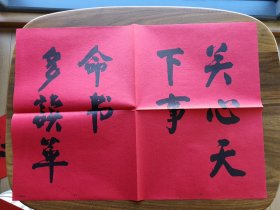 关心天
下事
命书
多读革